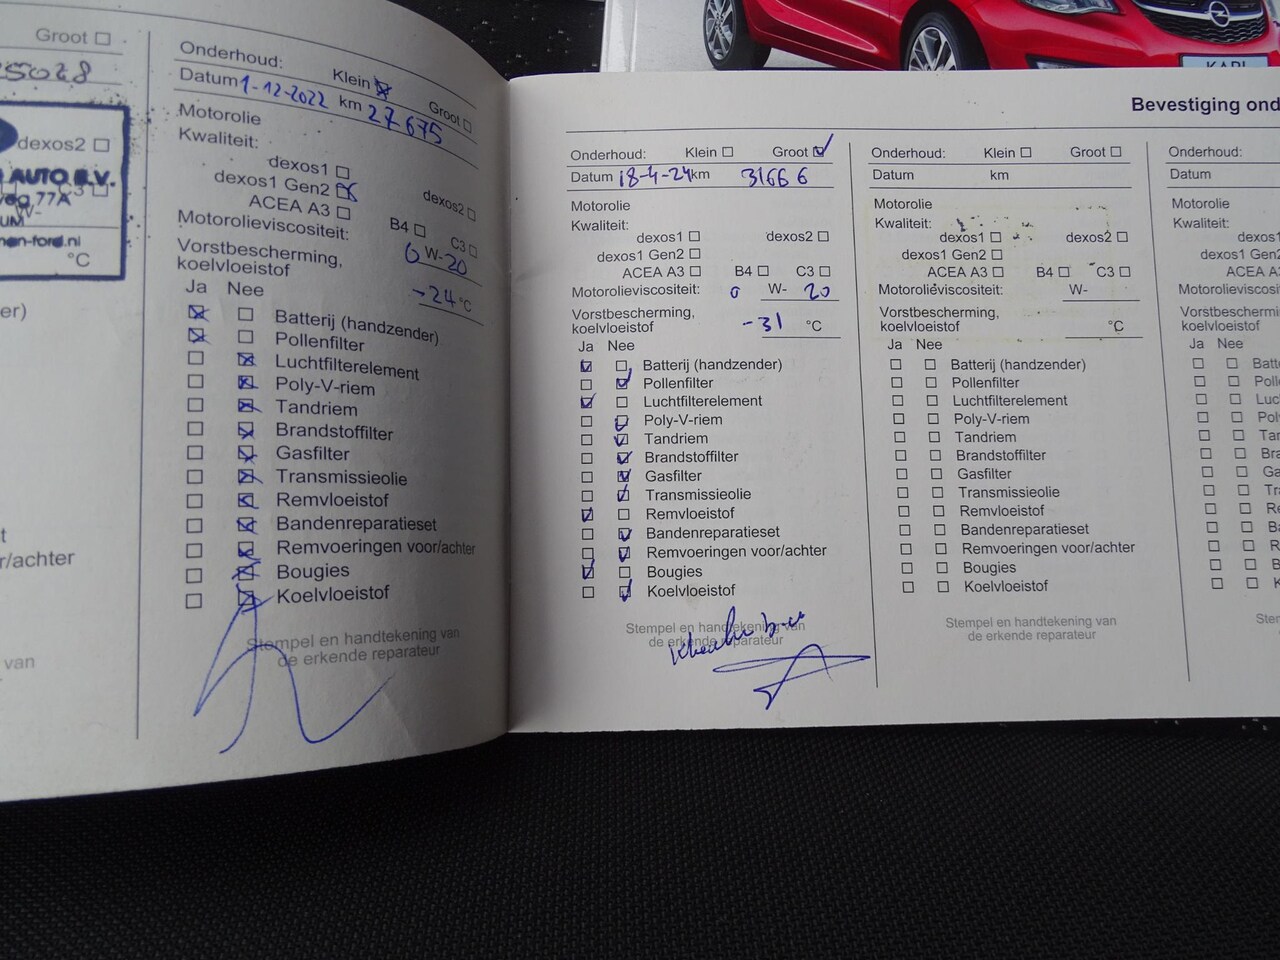 Groot
25028
dexos2
AUTO B.V.
weg 77A
W-
UM
en-ford.nl
°C
r/achter
van
Onderhoud: Klein Groot
Datum 1-12-2022 km 27675
Motorolie
Kwaliteit:
dexos1
dexos1 Gen2 dexos2
ACEA A3 B4 C3
Motorolieviscositeit: 0 W- 20
Vorstbescherming,
koelvloeistof -24 °C
Ja Nee
Batterij (handzender)
Pollenfilter
Luchtfilterelement
Poly-V-riem
Tandriem
Brandstoffilter
Gasfilter
Transmissieolie
Remvloeistof
Bandenreparatieset
Remvoeringen voor/achter
Bougies
Koelvloeistof
Stempel en handtekening van
de erkende reparateur
KARL
Bevestiging ond
Onderhoud: Klein Groot
Datum 18-4-24 km 31666
Motorolie
Kwaliteit:
dexos1 dexos2
dexos1 Gen2
ACEA A3 B4 C3
Motorolieviscositeit: 0 W- 20
Vorstbescherming,
koelvloeistof -31 °C
Ja Nee
Batterij (handzender)
Pollenfilter
Luchtfilterelement
Poly-V-riem
Tandriem
Brandstoffilter
Gasfilter
Transmissieolie
Remvloeistof
Bandenreparatieset
Remvoeringen voor/achter
Bougies
Koelvloeistof
Stempel en handtekening van
de erkende reparateur
Onderhoud: Klein Groot
Datum km
Motorolie
Kwaliteit:
dexos1 dexos2
dexos1 Gen2
ACEA A3 B4 C3
Motorolieviscositeit: W-
Vorstbescherming,
koelvloeistof °C
Ja Nee
Batterij (handzender)
Pollenfilter
Luchtfilterelement
Poly-V-riem
Tandriem
Brandstoffilter
Gasfilter
Transmissieolie
Remvloeistof
Bandenreparatieset
Remvoeringen voor/achter
Bougies
Koelvloeistof
Stempel en handtekening van
de erkende reparateur
Onderhoud:
Datum
Motorolie
Kwaliteit:
dexos1
dexos1 Gen2
ACEA A3
Motorolieviscositeit
Vorstbescherming,
koelvloeistof
Ja Nee